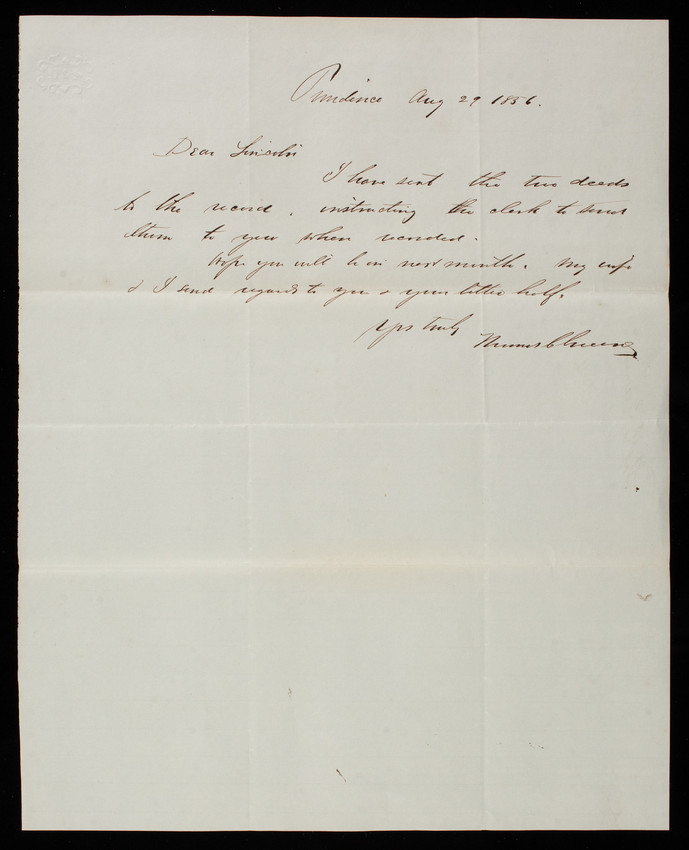 Providence Aug 29 1856.
Dear Lincoln
I have sent the two deeds
to the record, instructing the clerk to send
them to you when recorded.
Hope you will be in next month. My wife
& I send regards to you & your better half.
Yrs truly
Thomas C Greene